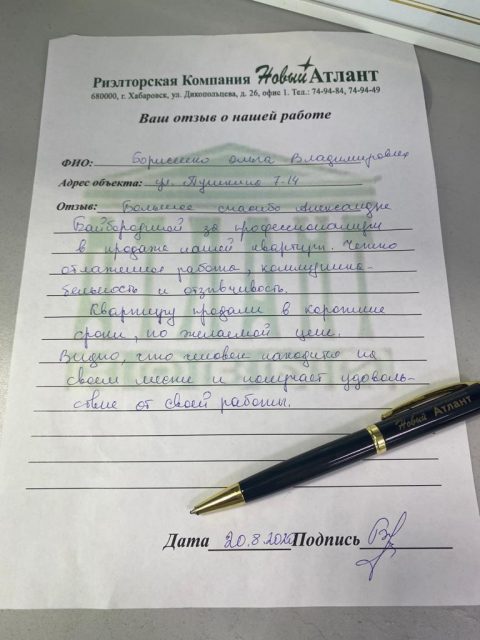 Риэлторская Компания Новый Атлант
680000, г. Хабаровск, ул. Дикопольцева, д. 26, офис 1. Тел.: 74-94-84, 74-94-49
Ваш отзыв о нашей работе
ФИО: Борисенко Ольга Владимировна
Адрес объекта: ул. Пушкина 7-14
Отзыв: Большое спасибо Александре
Байбородиной за профессионализм
в продаже нашей квартиры. Четко
отлаженная работа, коммуника-
бельность и отзывчивость.
Квартиру продали в короткие
сроки, по желаемой цене.
Видно, что человек находится на
своем месте и получает удоволь-
ствие от своей работы.
Новый Атлант
Дата 20.8.2020 Подпись